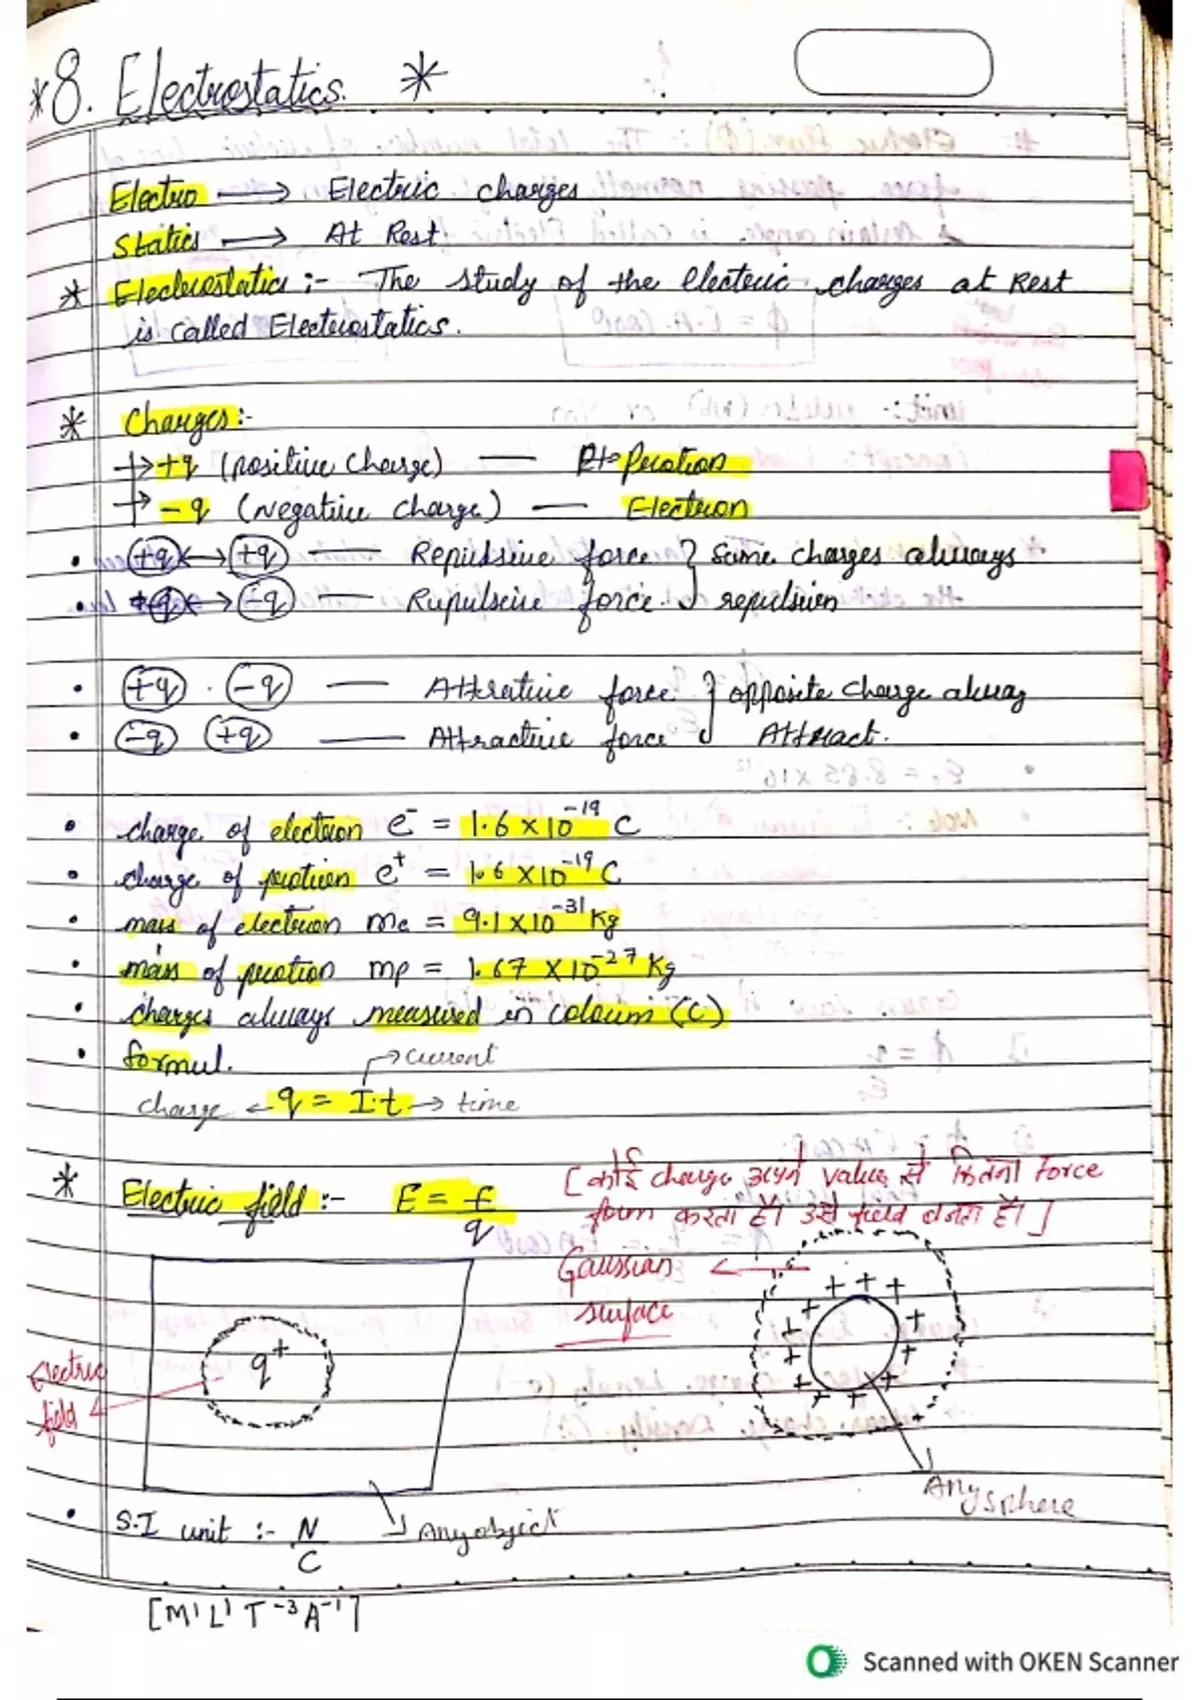 *8. Electrostatics. *
Electro → Electric charges
Statics → At Rest
* Electrostatics :- The study of the electric charges at Rest
is called Electrostatics.
* Charges :-
→ +q (positive charge) — Proton
→ -q (Negative charge) — Electron
• +q ↔ +q — Repulsive force } Same charges always
• -q ↔ -q — Repulsive force } repulsion
• +q . -q — Attrative force } opposite charge alway
• -q +q — Attractive force } Attract.
• charge of electron e⁻ = 1.6 × 10⁻¹⁹ C
• charge of proton e⁺ = 1.6 × 10⁻¹⁹ C
• mass of electron me = 9.1 × 10⁻³¹ Kg
• mass of proton mp = 1.67 × 10⁻²⁷ Kg
• charges always measured in coloum (C)
• formul.
→ current
charge ← q = I.t → time
* Electric field :- E = f/q
[कोई charge अपने value से कितना force
form करता है। उसे field बोलते हैं।]
Gaussian
surface
+ + + + + + + + + + + +
q⁺
Electric
field
Any sphere
• S.I unit :- N/C
Any object
[M¹ L¹ T⁻³ A⁻¹]
Scanned with OKEN Scanner